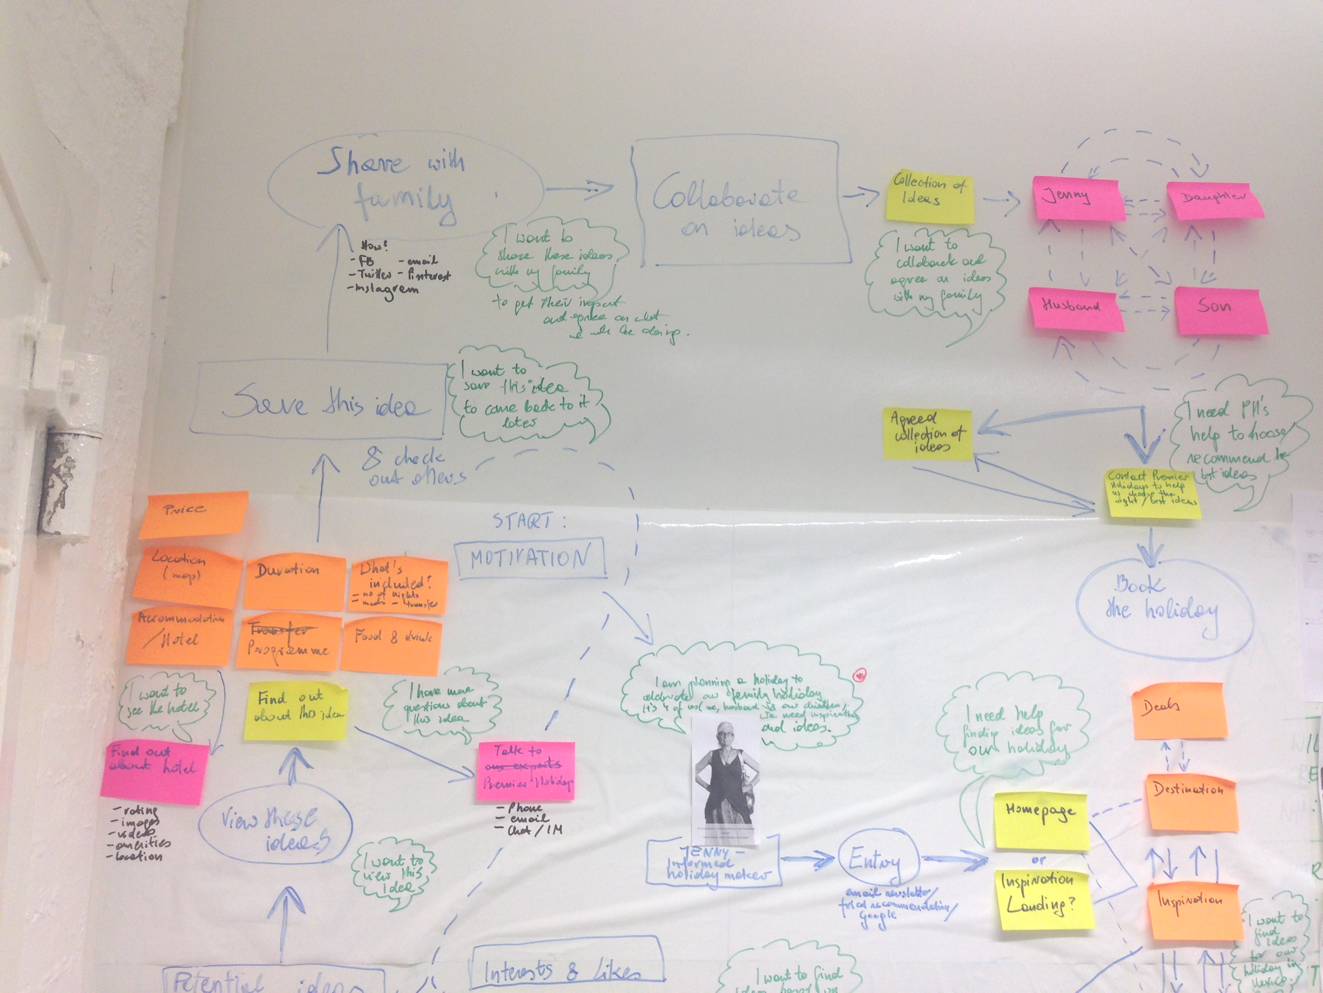 Share with
family
How?
- FB - email
- Twitter - Pinterest
- Instagram
I want to
share these ideas
with my family
to get their input
and agree on what
we'll be doing.
Collaborate
on ideas
Collection of
Ideas
I want to
collaborate and
agree on ideas
with my family
Jenny
Daughter
Husband
Son
Save this idea
I want to
save this idea
to come back to it
later
& check
out offers
Agreed
collection of
ideas
I need PH's
help to choose/
recommend
best ideas
Contact Premier
Holidays to help
us choose the
right / best ideas
Book
the holiday
START:
MOTIVATION
Price
Location
(map)
Duration
What's
included?
- no of nights
- meals - transfer
Accommodation
/Hotel
Transfer
Programme
Food & drink
I want to
see the hotel
Find out
about this idea
I have more
question about
this idea
Find out
about hotel
- rating
- images
- videos
- amenities
- location
Talk to
our experts
Premier Holiday
- Phone
- email
- Chat / IM
View these
ideas
I want to
view this
idea
I am planning a holiday to
celebrate our family holiday
It's 4 of us: me, husband & our children,
we need inspiration
and ideas.
JENNY -
Informed
holiday maker
Entry
email newsletter/
friend recommendation/
Google
I need help
finding ideas for
our holiday
Homepage
or
Inspiration
Landing?
Deals
Destination
Inspiration
I want to
find
ideas
for our
holiday in
Potential ideas
Interests & likes
I want to find
ideas based on